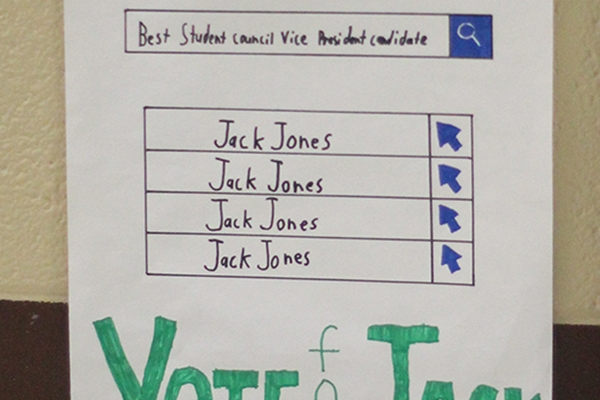 Best Student council Vice President candidate
Jack Jones
Jack Jones
Jack Jones
Jack Jones
Vote for Jack